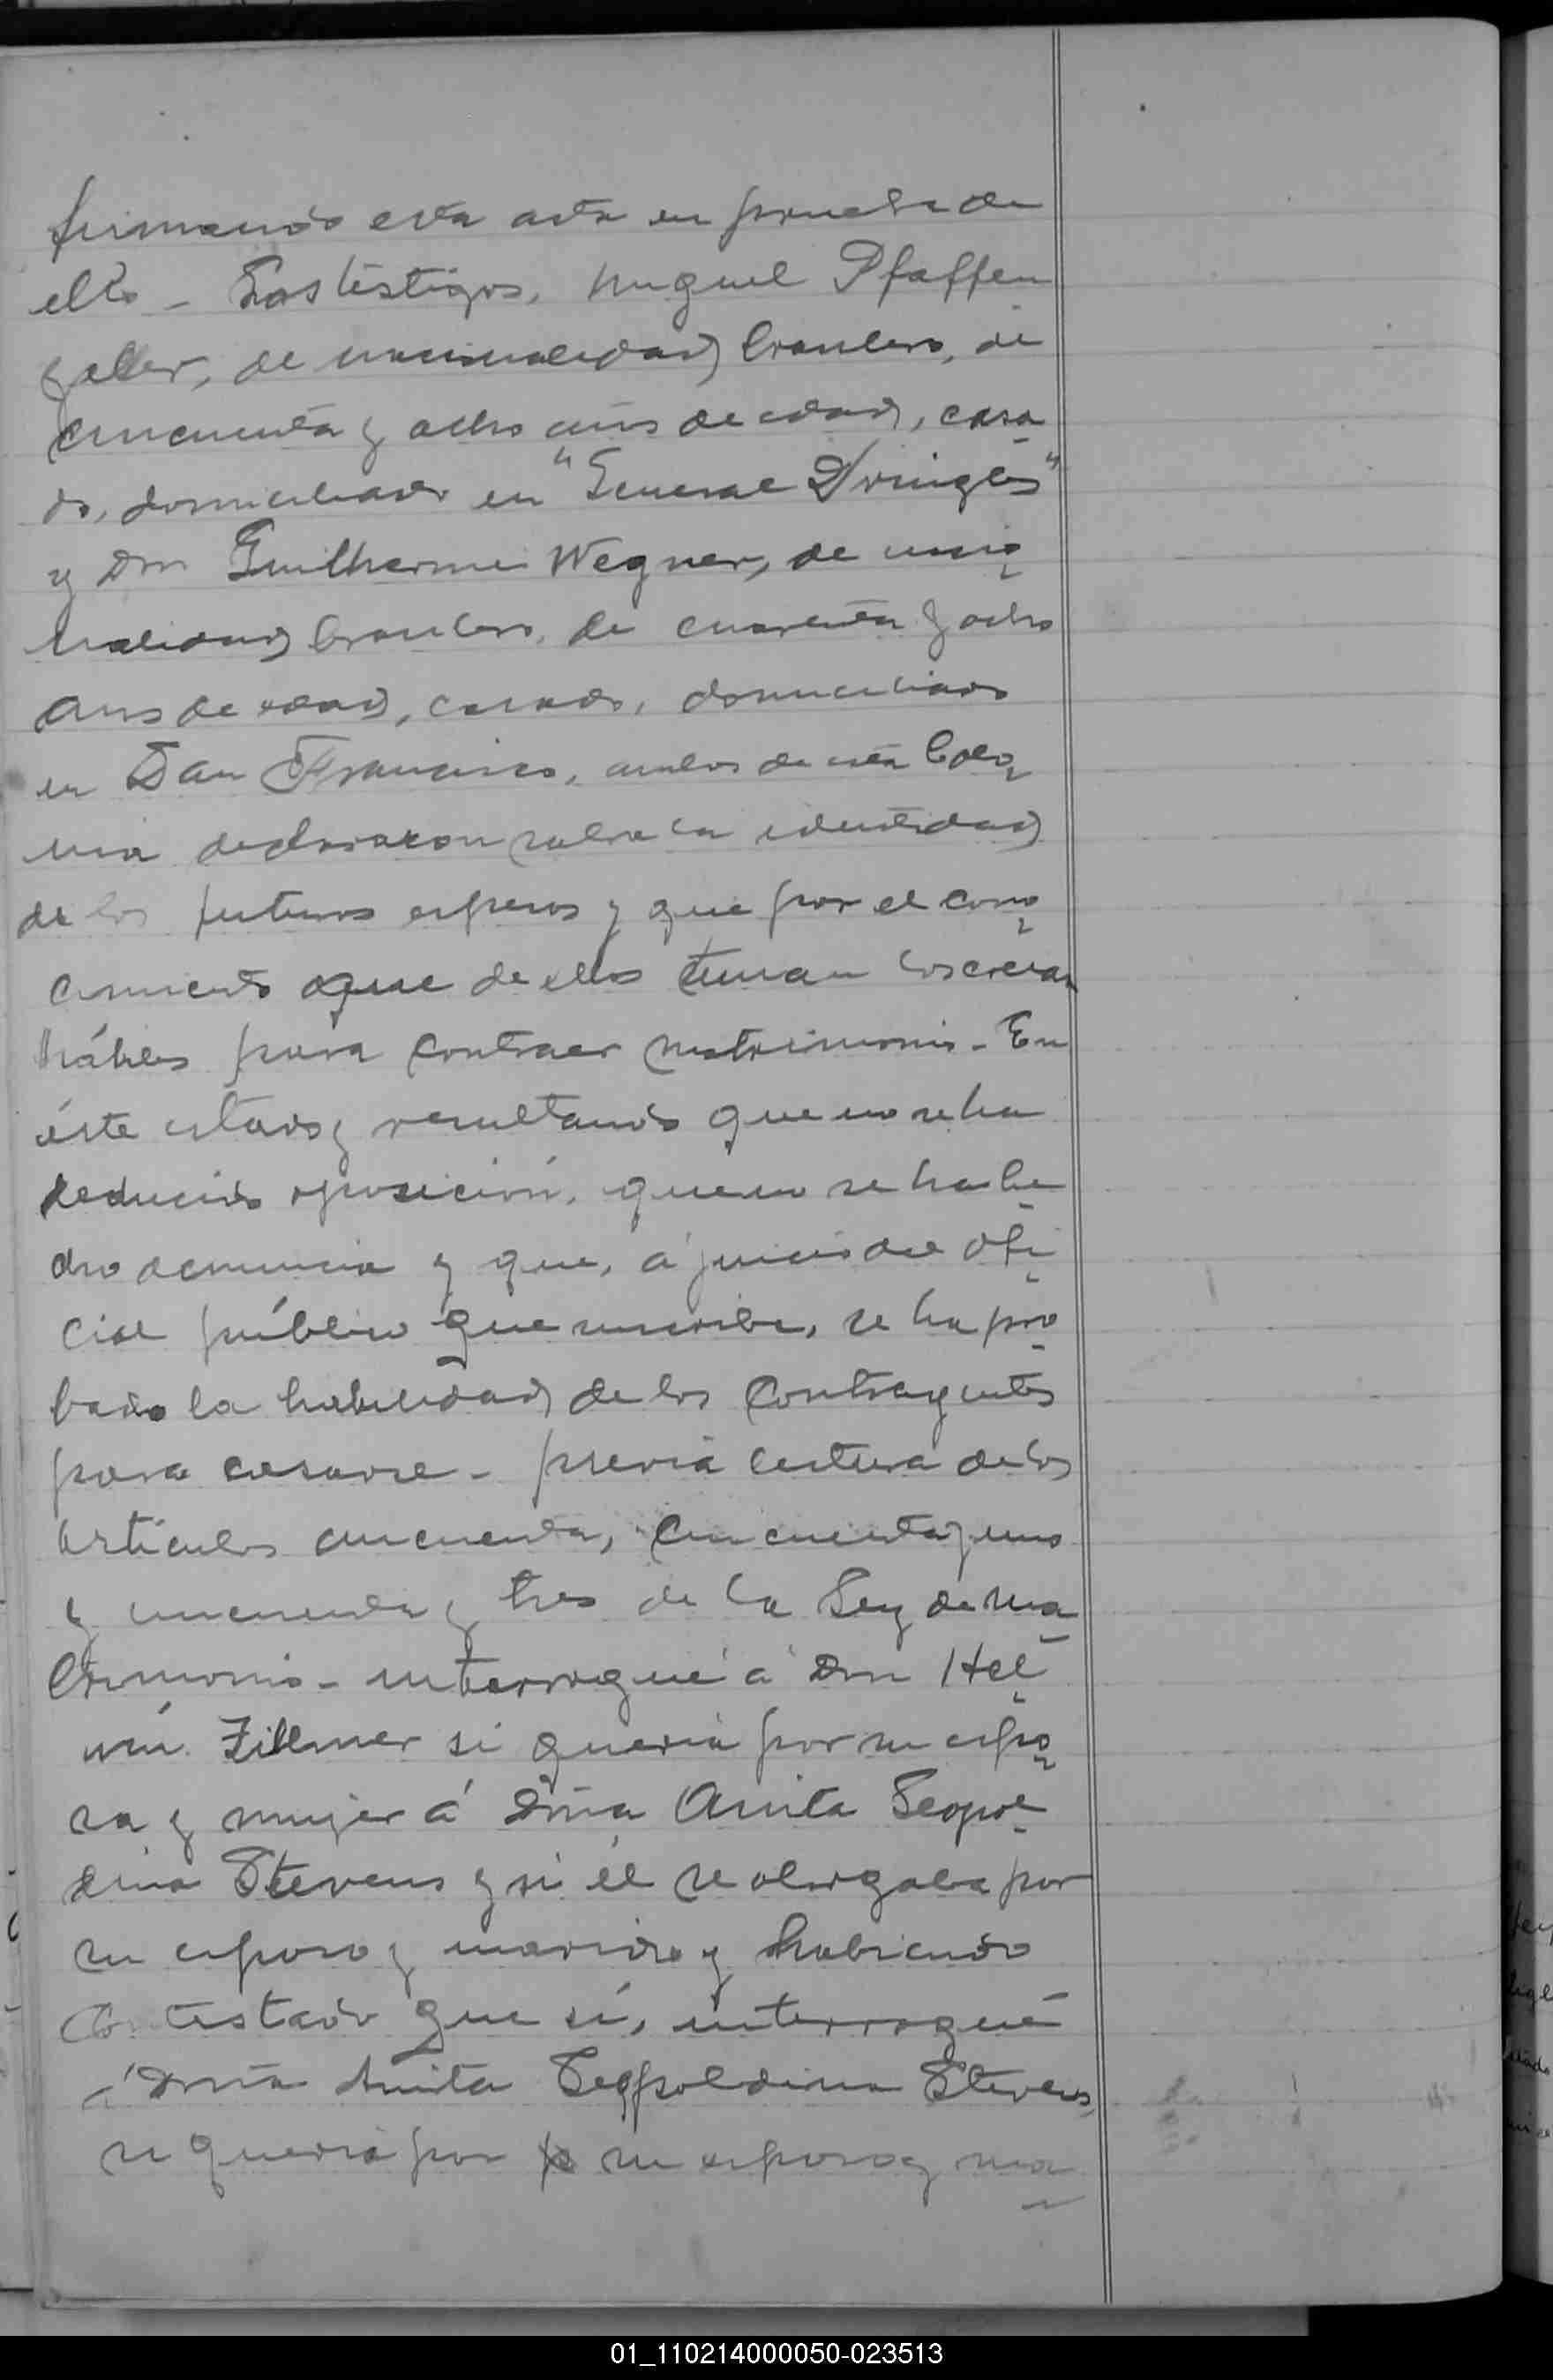 firmando esta acta en prueba de
ello - Los testigos, Miguel Pfaffen
zeller, de nacionalidad brasilero, de
cincuenta y ocho años de edad, casa
do, domiciliado en "General Pringles"
y Don Guilherme Wegner, de nacio
nalidad brasilero, de cuarenta y ocho
años de edad, casado, domiciliado
en San Francisco, ambos de esta Colo
nia declararon sobre la identidad
de los futuros esposos y que por el cono
cimiento que de ellos tenian los creian
hábiles para contraer matrimonio - En
éste estado y resultando que no se ha
deducido oposición, que no se ha he
cho denuncia y que, á juicio del Ofi
cial público que suscribe, se ha pro
bado la habilidad de los contrayentes
para casarse - previa lectura de los
artículos cincuenta, cincuenta y uno
y cincuenta y tres de la Ley de Ma
trimonio - interrogué á Don Hel
Zillmer si queria por su espo
sa y mujer á Doña Anita Leopol
dina Stevens y si él se otorgaba por
su esposo y marido y habiendo
contestado que sí, interrogué
á Doña Anita Leopoldina Stevens,
si queria por su esposo y ma
01_110214000050-023513